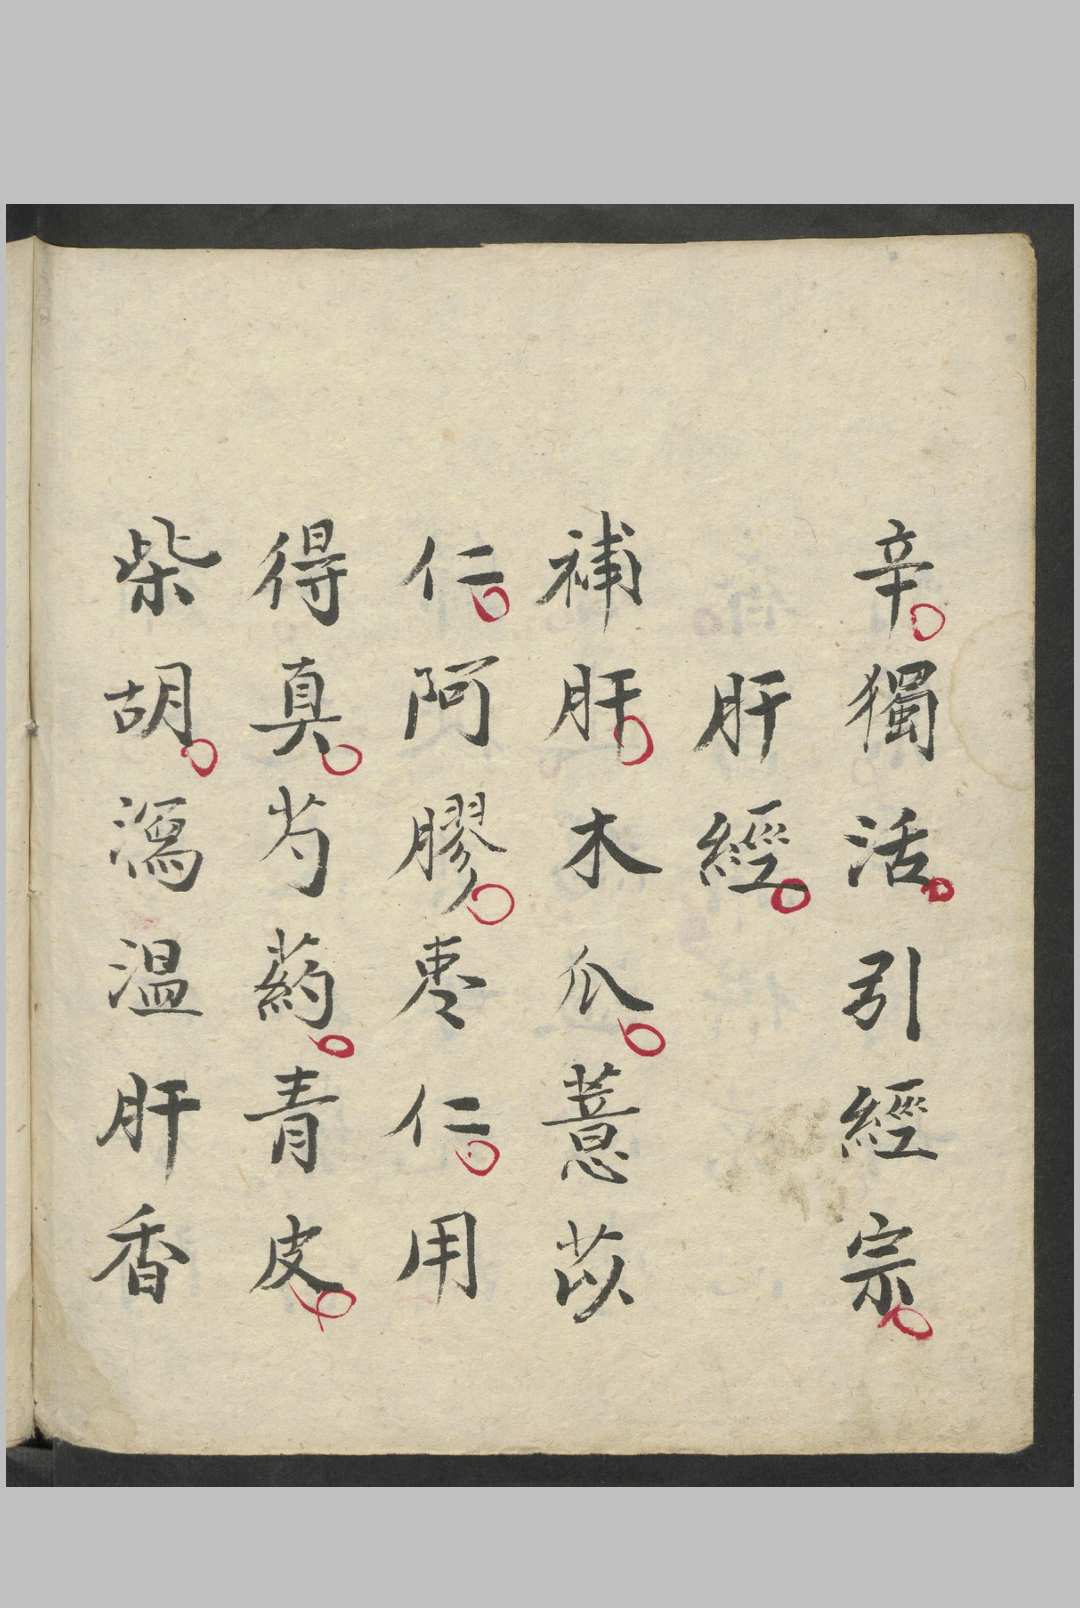 辛。獨活。引經宗。
肝經。
補肝。木瓜。薏苡
仁。阿膠。枣仁。用
得真。芍葯。青皮。
柴胡。瀉温肝香